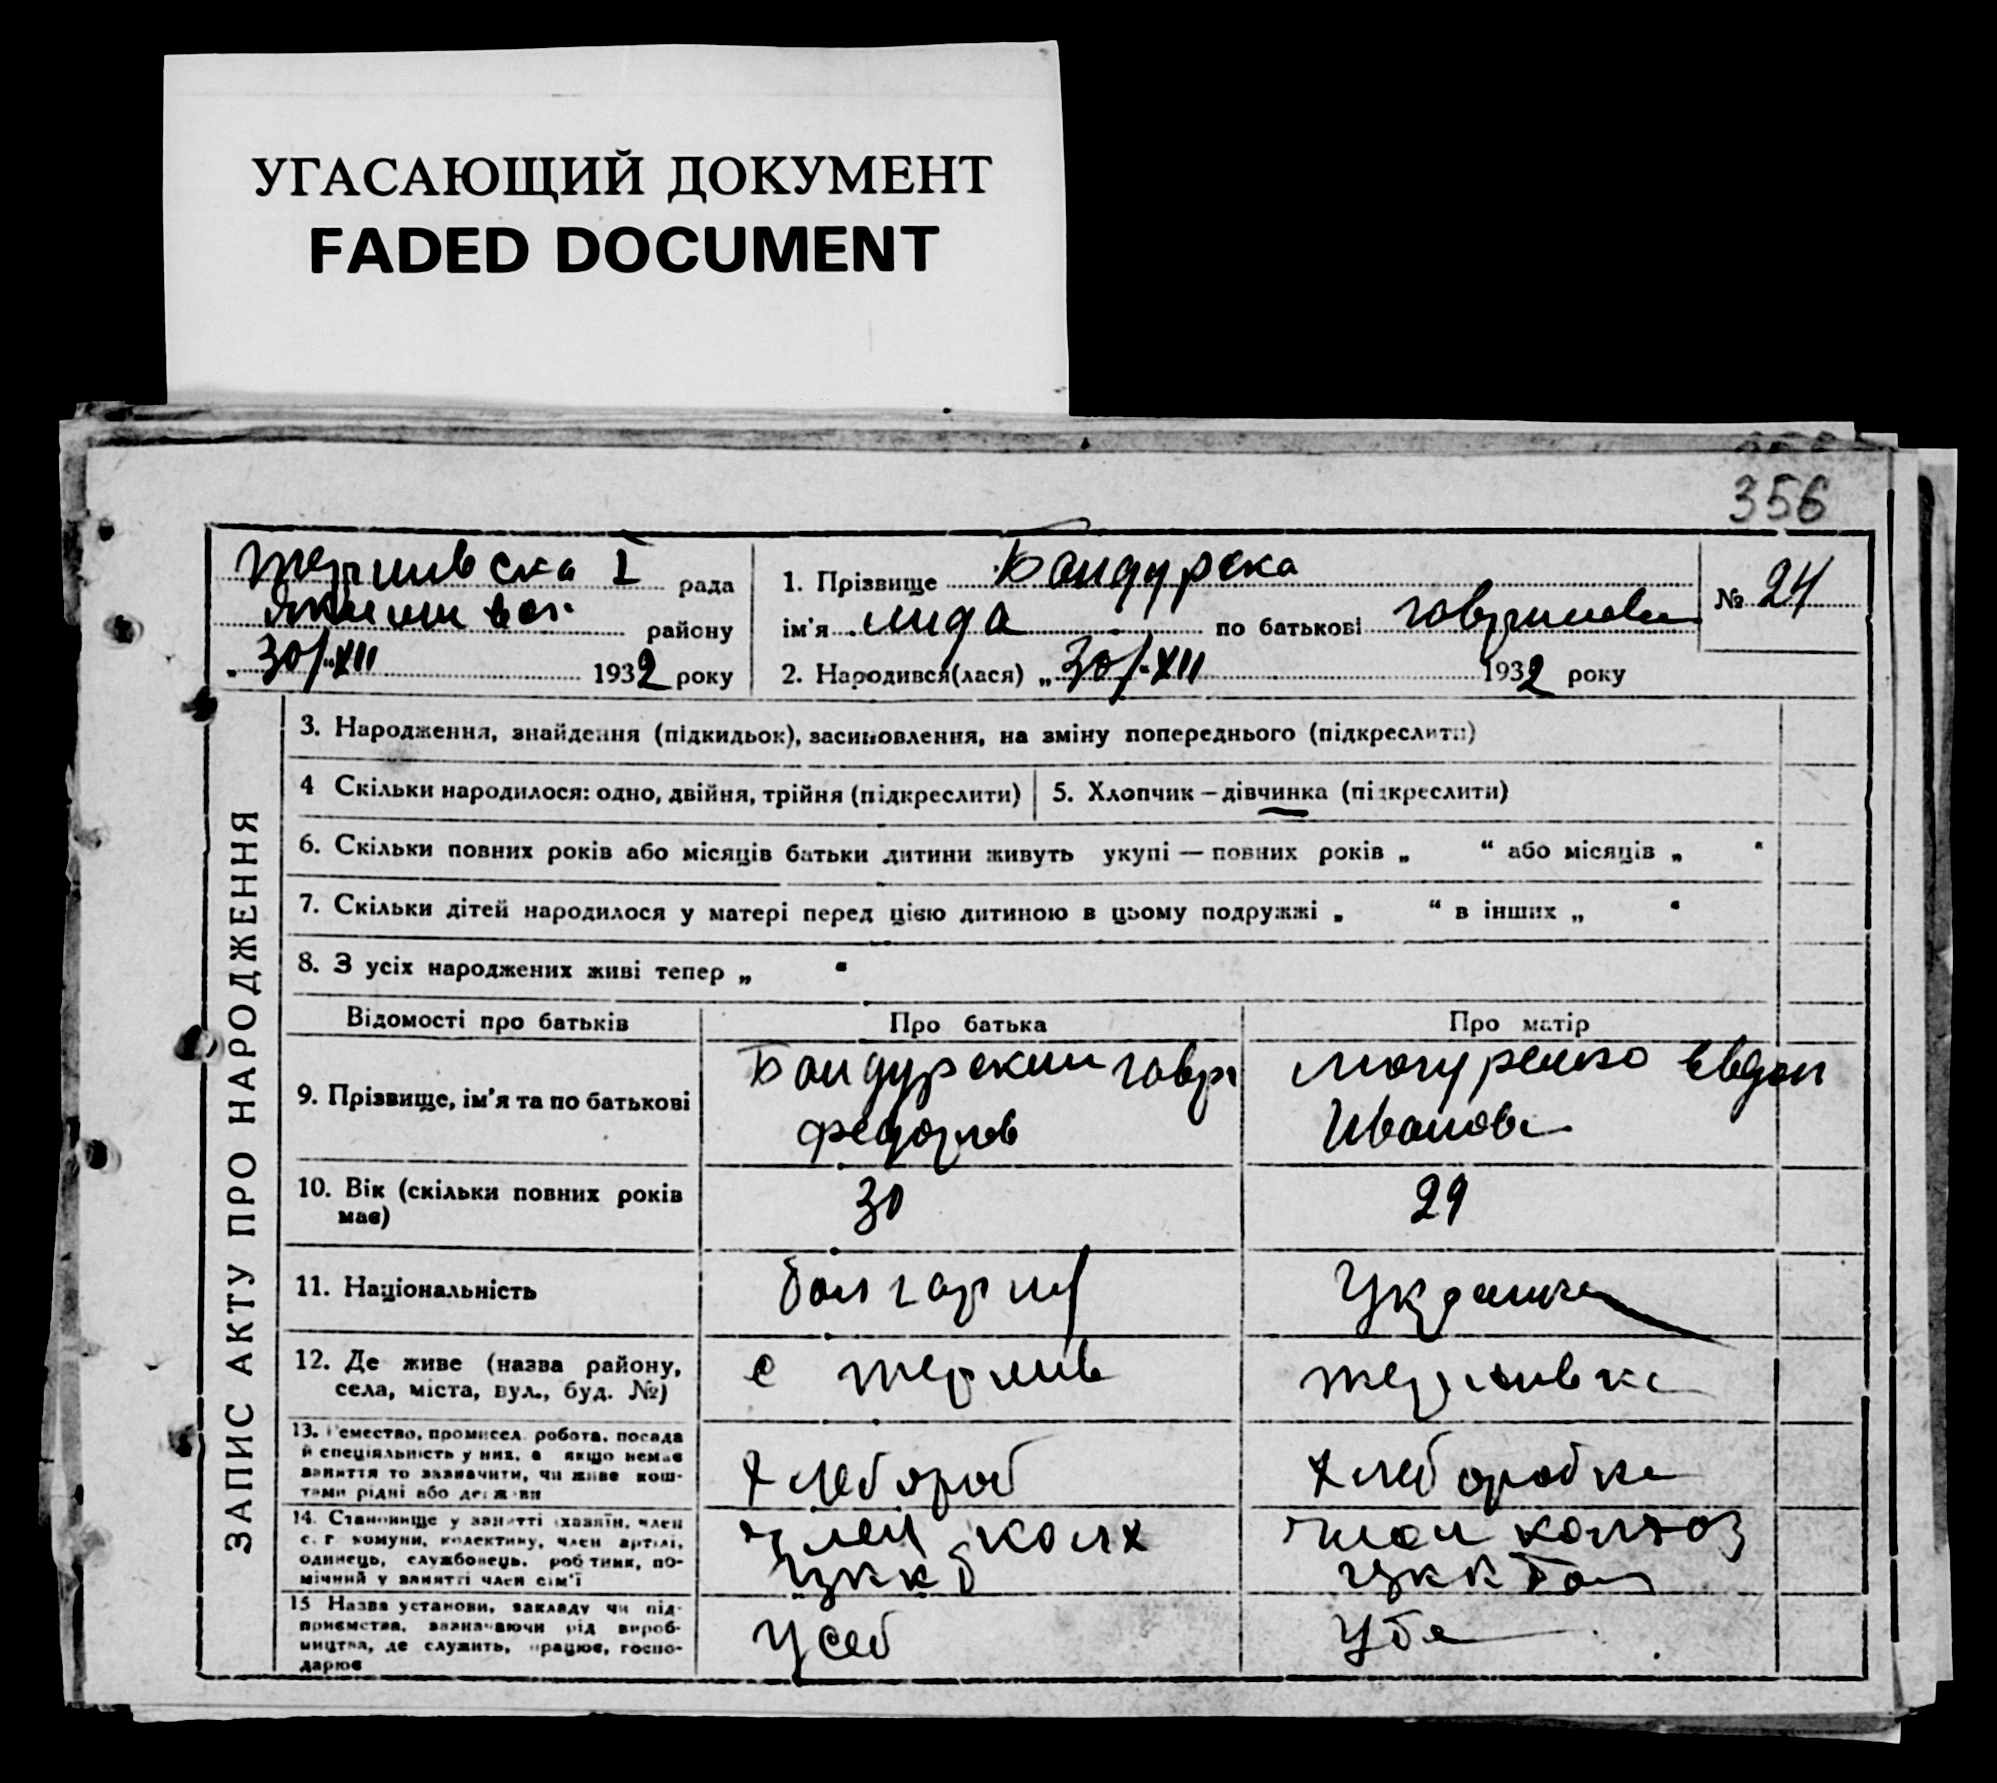 УГАСАЮЩИЙ ДОКУМЕНТ
FADED DOCUMENT
356
Тернивска I рада
району
30/XII 1932 року
1. Прізвище Бандурска
ім'я Лида по батькові
№ 24
2. Народився(лася) „30/“ XII 1932 року
ЗАПИС АКТУ ПРО НАРОДЖЕННЯ
3. Народження, знайдення (підкидьок), засиновлення, на зміну попереднього (підкреслити)
4 Скільки народилося: одно, двійня, трійня (підкреслити)
5. Хлопчик — дівчинка (підкреслити)
6. Скільки повних років або місяців батьки дитини живуть укупі — повних років „ “ або місяців „ “
7. Скільки дітей народилося у матері перед цією дитиною в цьому подружжі „ “ в інших „ “
8. З усіх народжених живі тепер „ “
Відомості про батьків
Про батька
Про матір
9. Прізвище, ім'я та по батькові
Бандурский Гавр
Федоров
Мазуренко Евдок
Иванов
10. Вік (скільки повних років
має)
30
29
11. Національність
болгарин
Украинка
12. Де живе (назва району,
села, міста, вул., буд. №)
с Тернив
Тернивка
13. Ремество, промисел, робота, посада
й спеціяльність у них, а якщо немає
заняття то зазначити, чи живе кош-
тами рідні або держави
хлебороб
хлеборобка
14. Становище у занятті (хазяїн, член
с. г. комуни, колективу, член артілі,
одинець, службовець, робітник, по-
мічний у занятті член сім'ї
член колх
член колхоз
15 Назва установи, закладу чи під-
приємства, зазначаючи рід вироб-
ництва, де служить, працює, госпо-
дарює
У себ